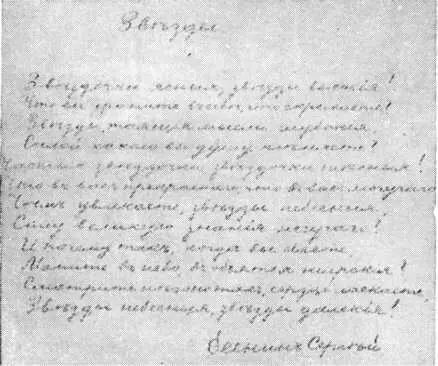 Звѣзды
Звѣздочки ясныя, звѣзды высокія!
Что вы храните въ себѣ, что скрываете?
Звѣзды, таящія мысли глубокія,
Силой какою вы душу плѣняете?
Частыя звѣздочки, звѣздочки тѣсныя!
Что въ васъ прекраснаго, что въ васъ могучаго?
Чѣмъ увлекаете, звѣзды небесныя,
Силу великую знанія жгучаго?
И почему такъ, когда вы сіяете,
Маните въ небо, въ объятья широкія?
Смотрите нѣжно такъ, сердце ласкаете,
Звѣзды небесныя, звѣзды далекія!
Есенинъ Сергѣй